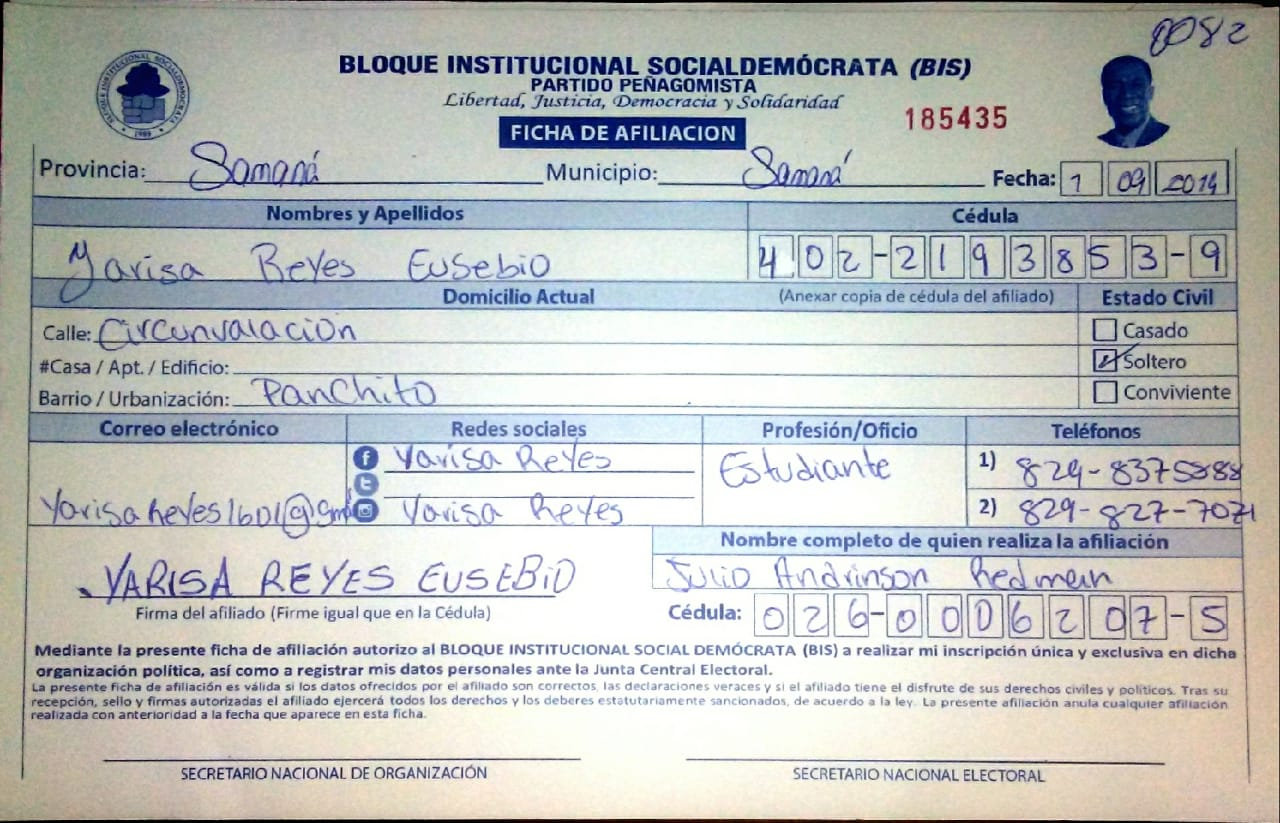 0082
BLOQUE INSTITUCIONAL SOCIALDEMÓCRATA (BIS)
PARTIDO PEÑAGOMISTA
Libertad, Justicia, Democracia y Solidaridad
185435
FICHA DE AFILIACION
BLOQUE INSTITUCIONAL SOCIALDEMOCRATA
1989
Provincia: Samaná Municipio: Samaná Fecha: 1 09 2014
Nombres y Apellidos Cédula
Yarisa Reyes Eusebio 402-2193853-9
Domicilio Actual (Anexar copia de cédula del afiliado) Estado Civil
Calle: Circunvalación Casado
#Casa / Apt. / Edificio: Soltero
Barrio / Urbanización: Panchito Conviviente
Correo electrónico Redes sociales Profesión/Oficio Teléfonos
Yarisa Reyes Estudiante 1) 829-8375888
YarisaReyes1601@gmail Yarisa Reyes 2) 829-827-7071
Nombre completo de quien realiza la afiliación
YARISA REYES EUSEBIO Julio Andrinson Redman
Firma del afiliado (Firme igual que en la Cédula) Cédula: 026-0006207-5
Mediante la presente ficha de afiliación autorizo al BLOQUE INSTITUCIONAL SOCIAL DEMÓCRATA (BIS) a realizar mi inscripción única y exclusiva en dicha
organización política, así como a registrar mis datos personales ante la Junta Central Electoral.
La presente ficha de afiliación es válida si los datos ofrecidos por el afiliado son correctos, las declaraciones veraces y si el afiliado tiene el disfrute de sus derechos civiles y políticos. Tras su
recepción, sello y firmas autorizadas el afiliado ejercerá todos los derechos y los deberes estatutariamente sancionados, de acuerdo a la ley. La presente afiliación anula cualquier afiliación
realizada con anterioridad a la fecha que aparece en esta ficha.
SECRETARIO NACIONAL DE ORGANIZACIÓN SECRETARIO NACIONAL ELECTORAL